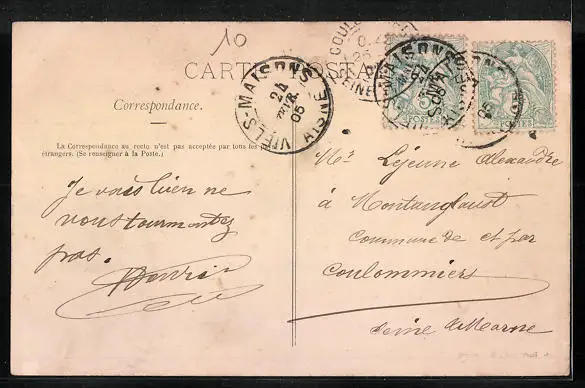 10
CARTE POSTALE
VIELS-MAISONS
24
05
AISNE
COULOMMIERS
Correspondance.
La Correspondance au recto n'est pas acceptée par tous les pays
étrangers. (Se renseigner à la Poste.)
POSTES
Mr Lejeune Alexandre
à Montanglaust
Commune de et par
Coulommiers
Seine & Marne
Je vais bien ne
vous tourmentez
pas.